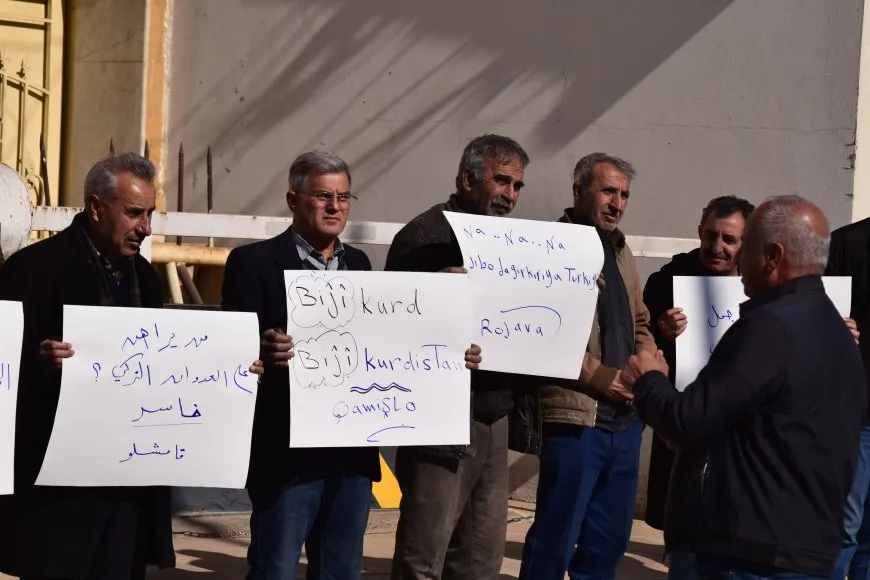 من يراهن
على العدوان التركي ؟
خاسر
قامشلو
Bijî kurd
Bijî kurdistan
Qamişlo
Na - Na .. Na
Jibo dagirkiriya Turkiya
Rojava